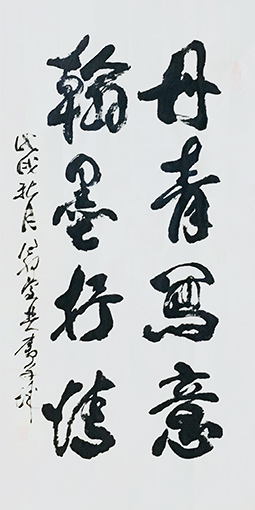 丹青寫意
翰墨抒情
戊戌秋月